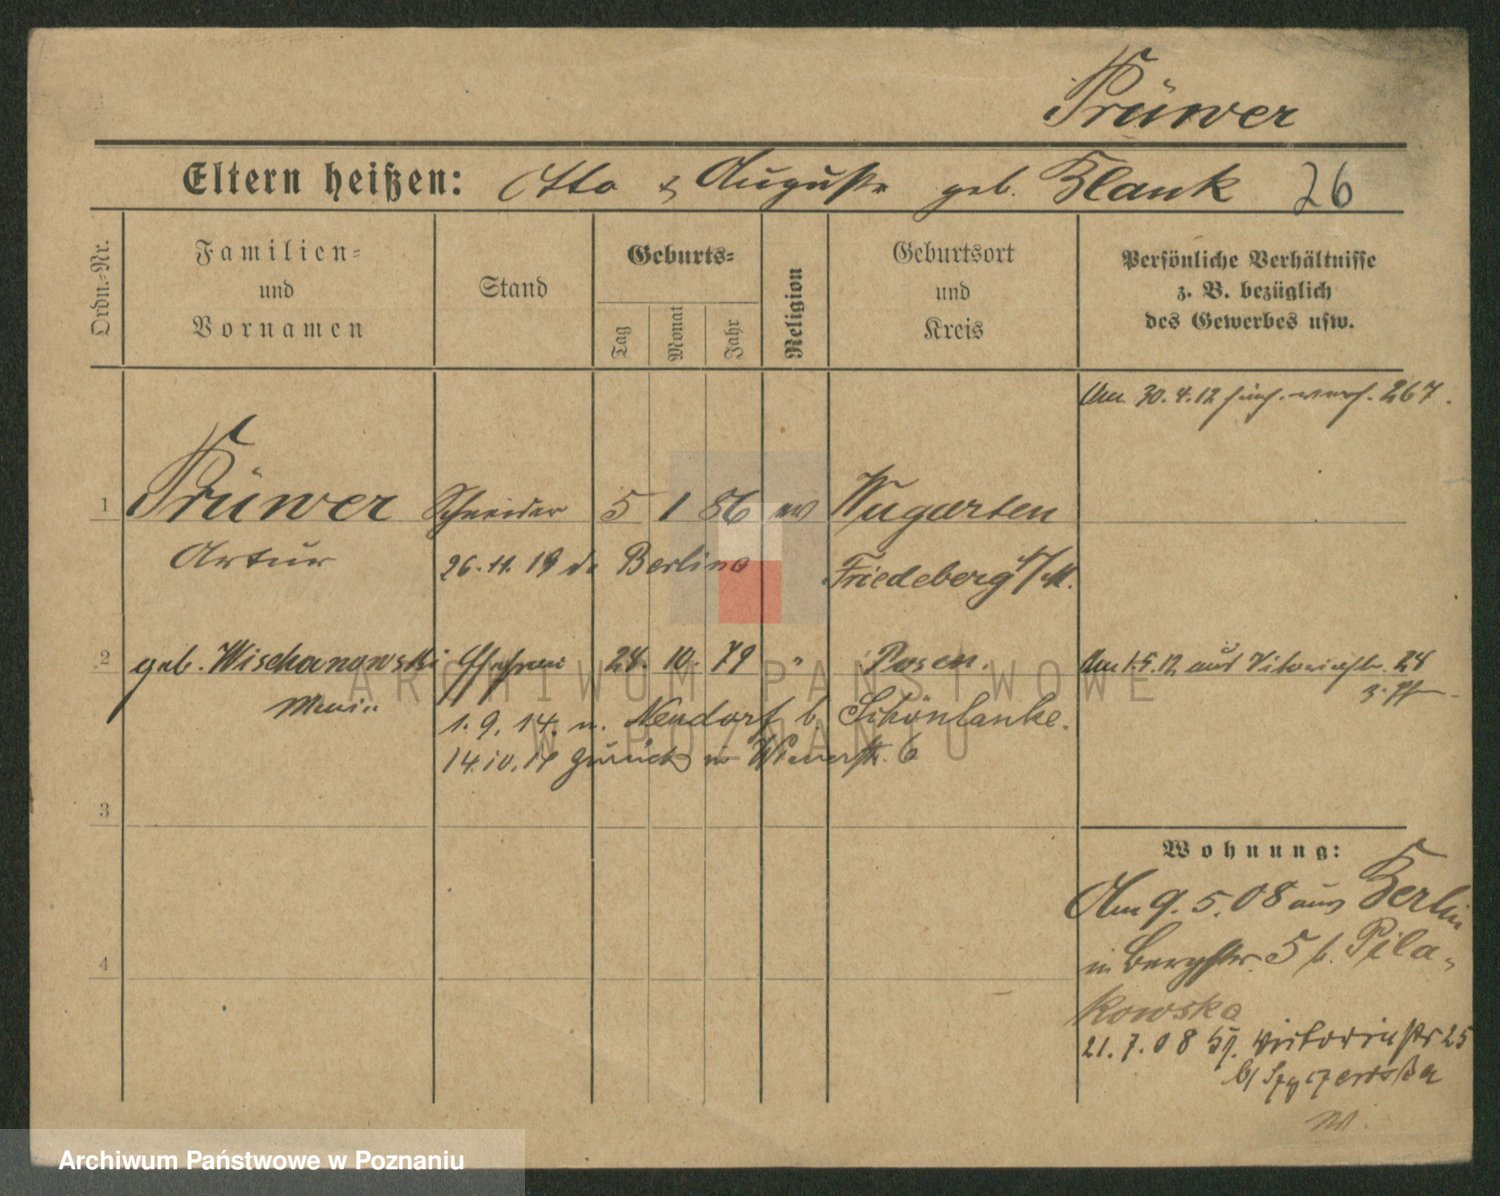 Prüwer
Eltern heißen: Otto & Auguste geb. Blank 26
Ordn.-Nr.
Familien-
und
Vornamen
Stand
Geburts-
Tag
Monat
Jahr
Religion
Geburtsort
und
Kreis
Persönliche Verhältnisse
z. B. bezüglich
des Gewerbes usw.
Am 30.4.12 267.
1 Prüwer Schneider 5 1 86 ev Wugarten
Artur 26.11.19 Berlin Friedeberg N/M.
2 geb. Wischanowski Ehefrau 24. 10. 79 " Posen. Am 1.5.12 aus 24
1.9.14. n. Neudorf b. Schönlanke.
14.10.14 zurück Wienerstr. 6
3
Wohnung:
Am 9.5.08 aus Berlin
in Bergstr. 5 b. Pila-
kowska
4
21.7.08 Viktoriastr 25
b/
ARCHIWUM PAŃSTWOWE
W POZNANIU
Archiwum Państwowe w Poznaniu